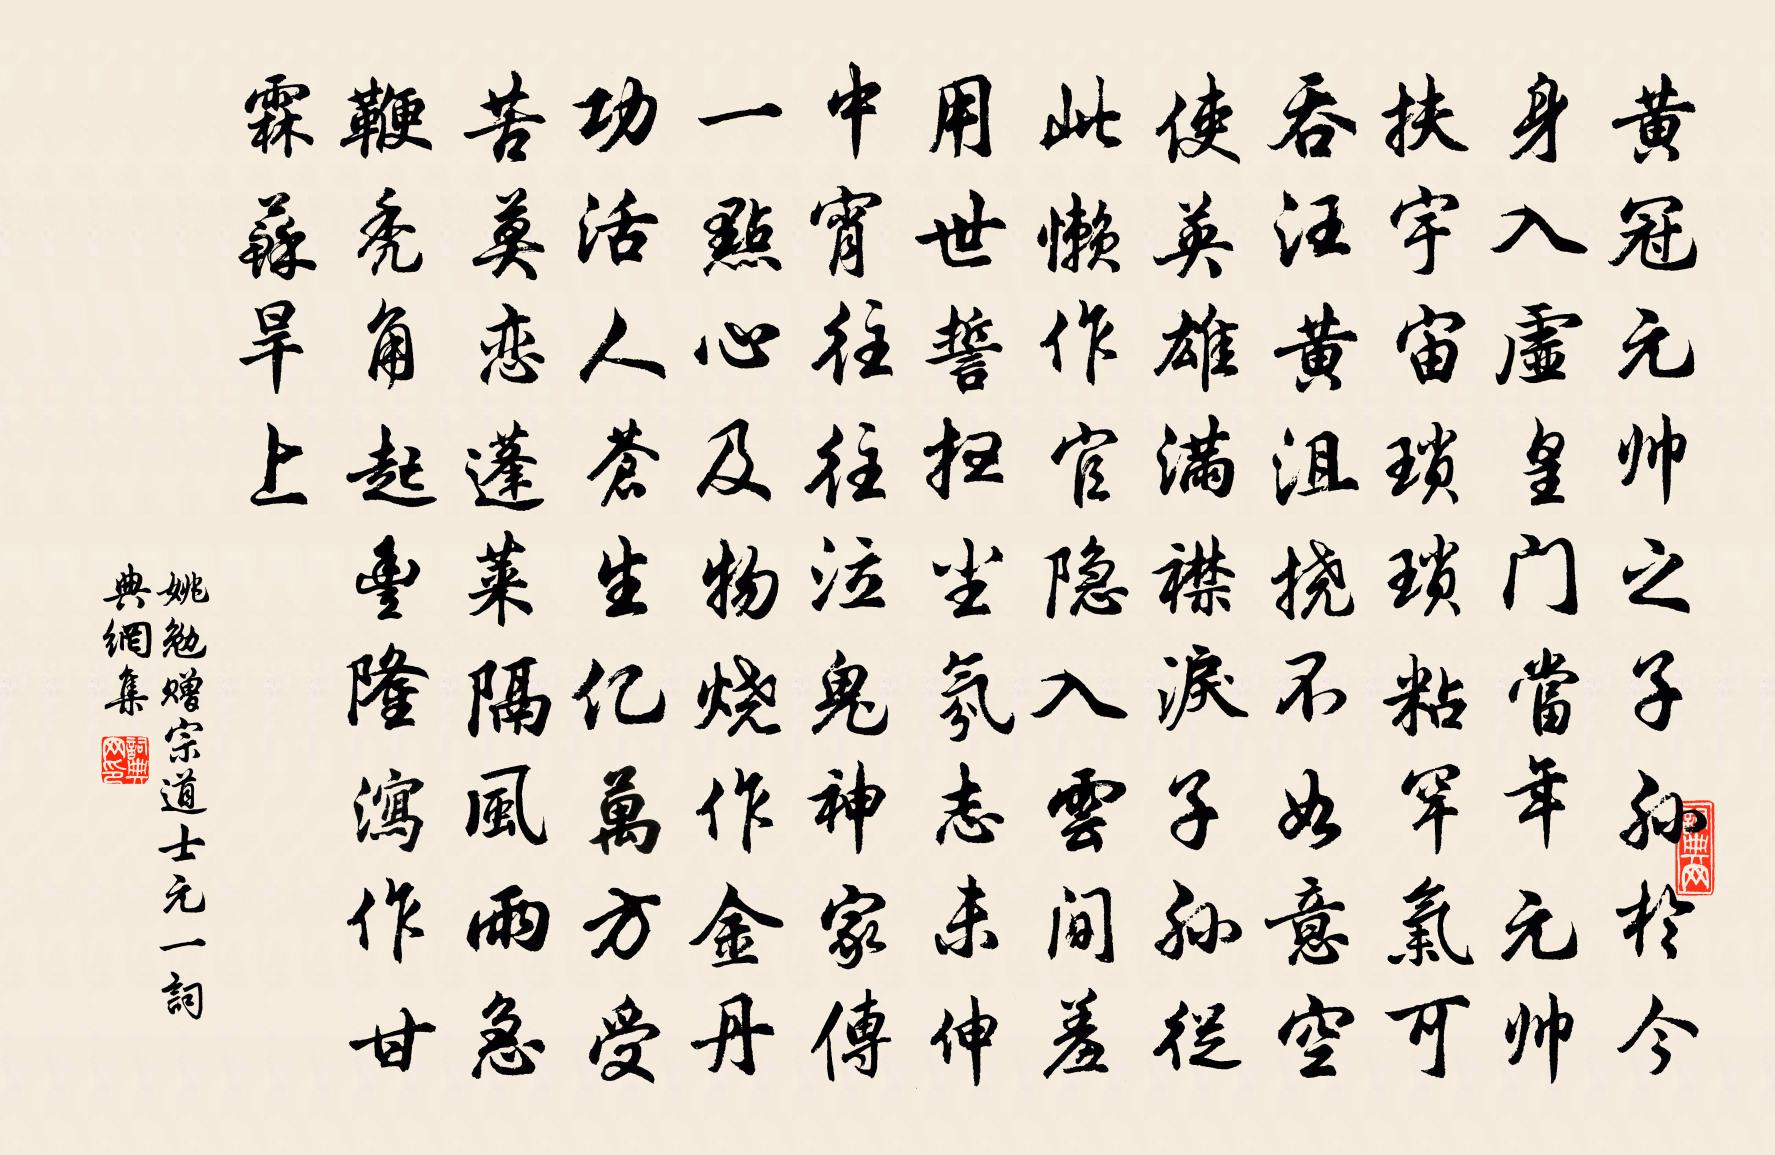 黄冠元帅之子孙於今
身入虚皇门當年元帅
扶宇宙琐琐粘罕氣可
吞汪黄沮挠不如意空
使英雄满襟淚子孙從
此懒作官隐入雲间羞
用世誓扫坐氛志未伸
中宵往往泣鬼神家傳
一點心及物烧作金丹
功活人苍生亿萬方受
苦莫恋蓬莱隔風雨急
鞭秃角起豊隆瀉作甘
霖蘇旱上
姚勉赠宗道士元一詞
典網集
詞典网印
詞典网